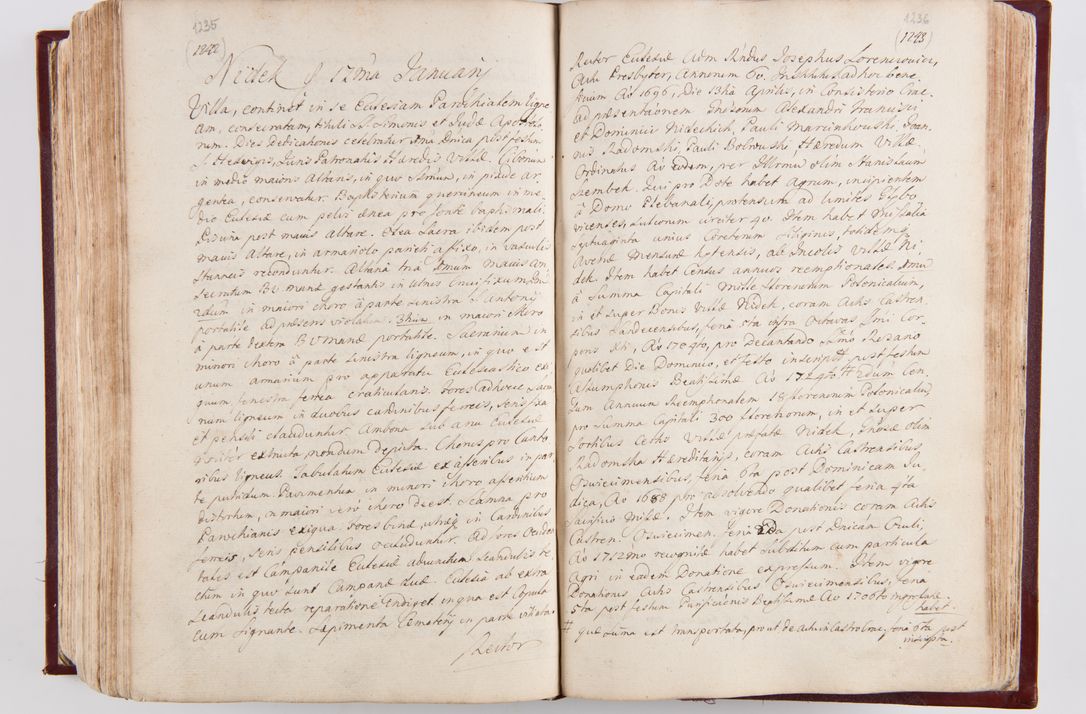 1235
(1242)
Nidek d 12ma Januarij
Villa, continet in se Ecclesiam Parochialem ligne-
am, consecratam, tituli S. Simonis et Judæ Aposto-
rum. Dies dedicationis celebratur Dnica post festum
S. Hedvigis, Juris Patronatus Hæredis Villæ. Ciborium
in medio maioris Altaris, in quo Smum, in pixide ar-
gentea, conservatur. Baptisterium in me-
dio Ecclesiæ cum pelvi ænea pro fonte baptismali.
Piscina post maius Altare. Olea Sacra ibidem post
maius Altare, in armariolo parieti affixo, in vasculis
stanneis reconduntur. Altaria tria 1mum maius
B.V. Mariæ gestantis in ulnis
2dum in maiori choro à parte sinistra S. Antonij
portatile ad præsens violatum. 3tium in maiori choro
à parte dextera B V Mariæ portatile. Sacrarium in
minori choro à parte sinistra ligneum, in quo est
unum armarium pro apparatu Ecclesiastico ex
quum fenestra ferrea craticulata. Fores ad hocce Sacra-
rium ligneum in duobus cardinibus ferreis, sera fixa
et pensili clauduntur. Ambona sub anu Ecclesiæ
extructa nondum depicta. Chorus pro Canto-
ribus ligneus. Tabulatum Ecclesiæ ex asseribus in par-
te putridum. Pavimentum, in minori choro asseritium
distortum, in maiori vero choro deest. Scamna pro
Parochianis exigua. Fores binæ, utræq in Cardinibus
ferreis, seris pensilibus occluduntur. Ad fores Occiden-
tales est Campanile Ecclesiæ adiunctum scandulis te-
ctum in quo sunt Campanæ duæ. Ecclesia ab extra
scandulis tecta reparatione indiget in qua est Copula
cum signante. Sepimenta Cemeterij in parte vitiata.
Rector
1236
(1243)
Rector Ecclesiæ Adm Rndus Josephus Lorencowicz,
Actu Presbyter, Annorum 60. Institut. ad hoc bene-
ficium Ao 1696, Die 13tia Aprilis, in Consistorio Crac.
ad præsentationem Gnsorum Alexandri Francisci
et Dominici Nideckich, Pauli Marcinkowski, Joan-
nis Radomski, Pauli Bobrowski Hæredum Villæ.
Ordinatus Ao eodem, per Illrmum olim Stanislaum
Szembek. Qui pro Dote habet Agrum, incipientem
à Domo Plebanali, protensum ad limites Gybo-
vicenses, sulcorum circiter 40. Item habet Missalia
Septuaginta unius Coretorum Siliginis, totidemq
Avenæ mensuræ Kętensis, ab Incolis Villæ Ni-
dek. Item habet Census annuos reemptionales. 1mum
à Summa Capitali Mille Florenorum Polonicalium,
in et super Bonis Villæ Nidek, coram Actis Castren-
sibus Sandecensibus, feria 5ta infra Octavas Smi Cor-
poris Xti, Ao 1704to, pro decantando Smo Rosario
qualibet Die Dominico, et festo inscript # post festum
Assumptionis Beatissimæ Ao 1724to # 2dum Cen-
sum Annuum Reemptionalem 18 florenorum Polonicalium,
pro Summa Capitali 300 florenorum, in et super
Sortibus Certis Villæ præfatæ Nidek, Gnosæ olim
Radomska Hæreditarijs, coram Actis Castrensibus
Osvecimensibus, feria 6ta post Dominicam Ju-
dica, Ao 1688 pro absolvendo qualibet feria 4ta
Sacrificio Missæ. Item vigore Donationis coram Actis
Castren. Osviecimen. feria 2da post Dnicam Oculi
Ao 1712mo recognitæ habet Subditum cum particula
Agri in eadem Donatione expressum. Item vigore
Donationis Actis Castrensibus Osviecimensibus, feria
5ta post festum Purificationis Beatissimæ Ao 1706to ingrossatæ
habet.
# quæ Suma est transportata, prout de actu in Castro Crac. feria 6ta post
inscripta.